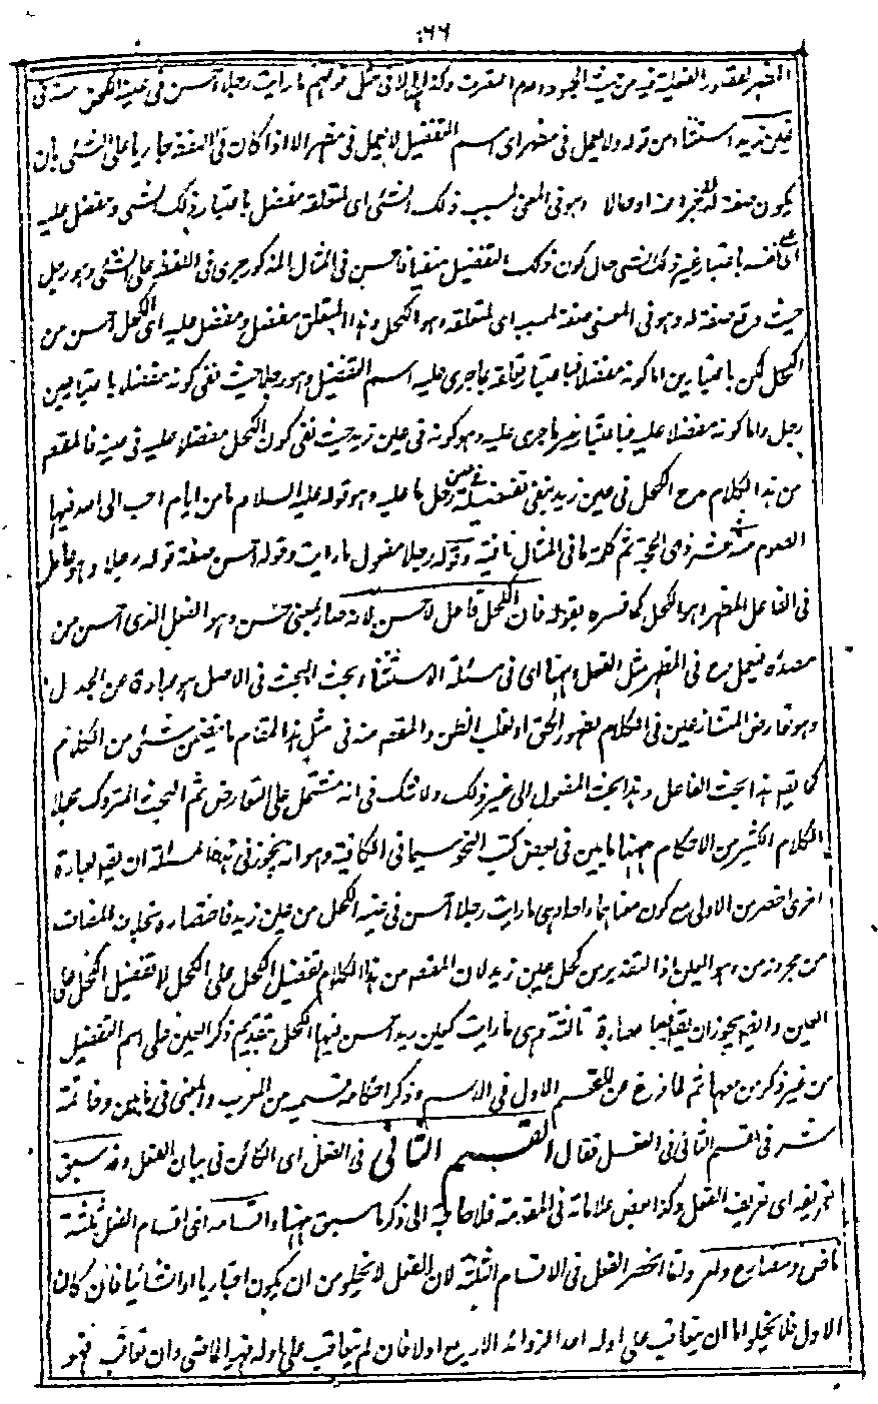 ١٦٦
في مثل قولهم ما رايت رجلا احسن في عينه الكحل منه في
عين زيد استثناء من قوله ولا يعمل في مظهر اي اسم التفضيل لا يعمل في مظهر الا اذا كان في اللفظ جاريا على الشئ بان
يكون صفة له او خبرا عنه او حالا وهو في المعنى لمسبب ذلك الشئ اي لمتعلقه مفضل باعتبار ذلك الشئ ومفضل عليه
اي على نفسه باعتبار غير ذلك الشئ حال كون ذلك التفضيل منفيا فاحسن في المثال المذكور جرى في اللفظ على الشئ وهو رجل
حيث وقع صفة له وهو في المعنى صفة لمسبب اي لمتعلقه وهو الكحل وهذا المتعلق مفضل ومفضل عليه اي الكحل احسن من
الكحل لكن باعتبارين اما كونه مفضلا فباعتبار تعلقه بما جرى عليه اسم التفضيل وهو رجلا حيث نفى كونه مفضلا باعتبار عين
رجل واما كونه مفضلا عليه فباعتبار غير ما جرى عليه وهو كونه في عين زيد حيث نفى كون الكحل مفضلا عليه في عينه فالمقصم
من هذا الكلام مدح الكحل في عين زيد بنفي تفضيله في عين رجل ما عليه وهو قوله عليه السلام ما من ايام احب الى الله فيها
الصوم منه في عشر ذي الحجة ثم كلمة ما في المثال نافية وقوله رجلا مفعول ما رايت وقوله احسن صفة قوله رجلا وهو عامل
في الفاعل المظهر وهو الكحل كما فسره بقوله فان الكحل فاعل لاحسن لانه صار بمعنى حسن وهو الفعل الذي احسن من
مصدره فيعمل في المظهر مثل الفعل ههنا اي في مسئلة الاستثناء بحث البحث في الاصل هو عبارة عن الجدل
وهو تعارض المتنازعين في الكلام لظهور الحق او لغلب الظن والمقصم منه في مثل هذا المقام ما يتضمن شئ من الكلام
كما يقم هذا بحث الفاعل وهذا بحث المفعول الى غير ذلك ولا شك في انه مشتمل على التعارض ثم البحث المتروك
الكلام الكثير من الاحكام ههنا ما بين في بعض كتب النحو سيما في الكافية وهو انه يجوز في هذه المسئلة ان يقم بعبارة
اخرى اخصر من الاولى مع كون معناهما واحدا هي ما رايت رجلا احسن في عينه الكحل من عين زيد فاختصاره بحذف المضاف
من مجرور من وهو العين اذ التقدير من كحل عين زيد لان المقصم من هذا الكلام تفضيل الكحل على الكحل لا تفضيل الكحل على
العين وايضم يجوز ان يقم فيها عبارة ثالثة وهي ما رايت كعين زيد احسن فيها الكحل بتقديم ذكر العين على اسم التفضيل
من غير ذكر من معها ثم لما فرغ عن القسم الاول في الاسم وذكر احكامه قسميه من المعرب والمبنى في بابين وخاتمة
شرع في القسم الثاني في الفعل فقال القسم الثاني في الفعل اي الكائن في بيان الفعل وقد سبق
تعريفه اي تعريف الفعل وكذا بعض علاماته في المقدمة فلا حاجة الى ذكر ما سبق ههنا واقسامه اي اقسام الفعل ثلثة
ماض ومضارع وامر وانما انحصر الفعل في الاقسام الثلثة لان الفعل لا يخلو من ان يكون اخباريا او انشائيا فان كان
الاول فلا يخلو اما ان يتعاقب على اوله احد الزوائد الاربع او لا فان لم يتعاقب على اوله فهو الماضي وان تعاقب فهو